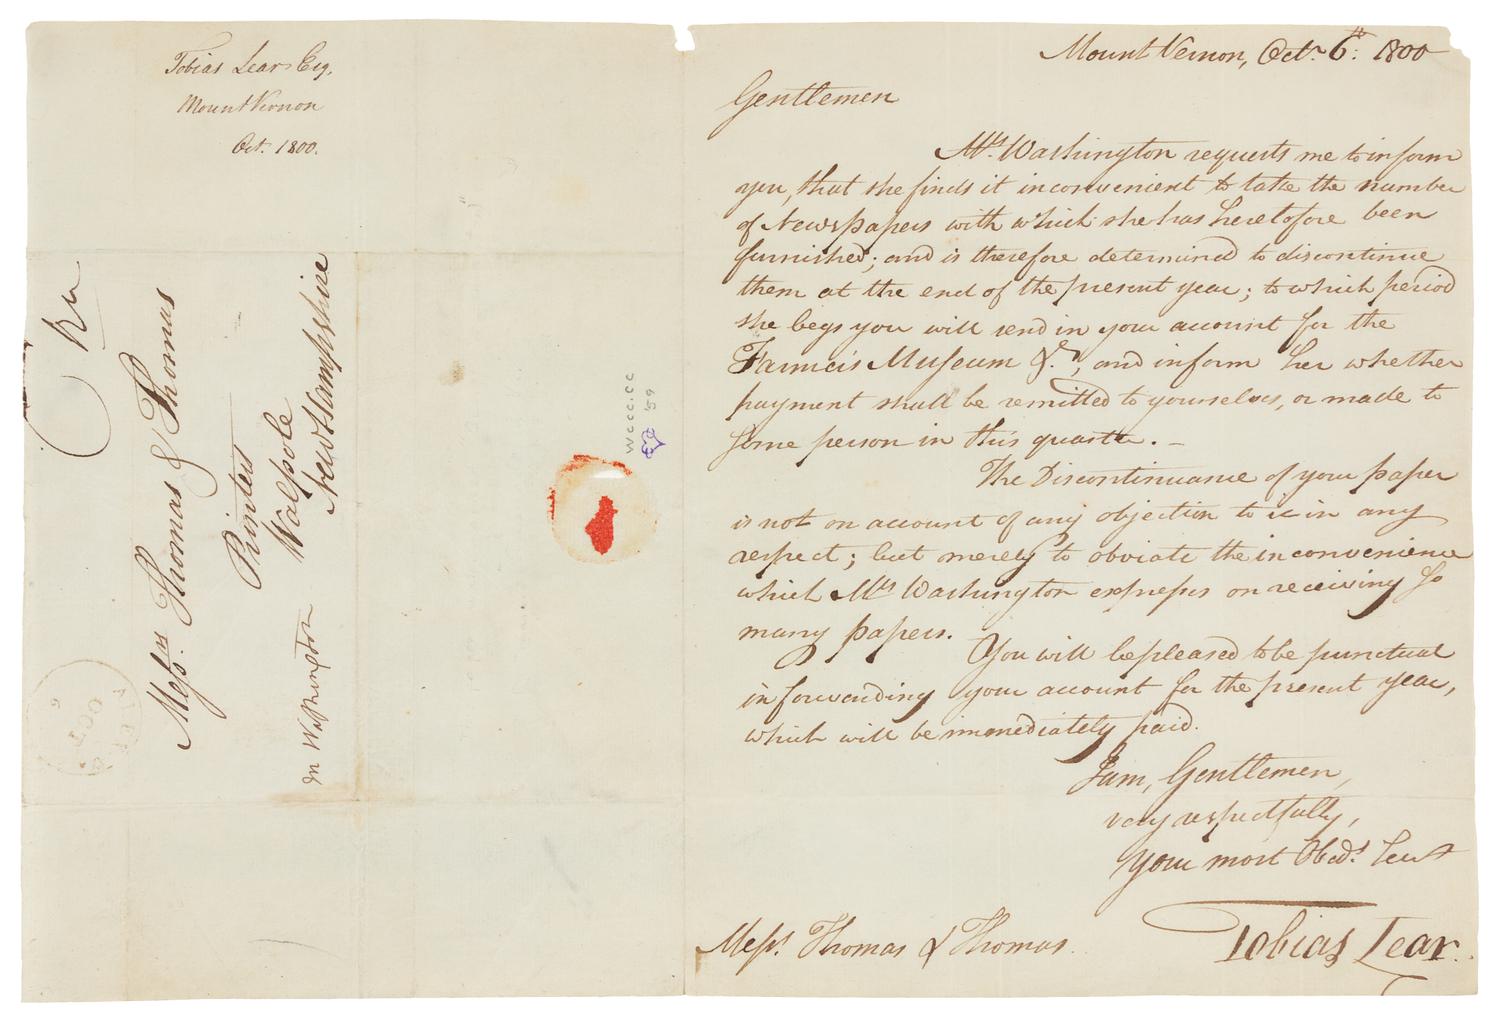 Tobias Lear Esq.
Mount Vernon
Oct. 1800.
Messrs. Thomas & Thomas
Printers
Walpole
New Hampshire
Mrs Washington
ALEX
OCT
6
WCCC.CC
'59
Mount Vernon, Octr. 6th: 1800
Gentlemen
Mrs. Washington requests me to inform
you, that she finds it inconvenient to take the number
of Newspapers with which she has heretofore been
furnished; and is therefore determined to discontinue
them at the end of the present year; to which period
she begs you will send in your account for the
Farmer's Museum &c., and inform her whether
payment shall be remitted to yourselves, or made to
some person in this quarter. –
The Discontinuance of your paper
is not on account of any objection to it in any
respect; but merely to obviate the inconvenience
which Mrs Washington expresses on receiving so
many papers.
You will be pleased to be punctual
in forwarding your account for the present year,
which will be immediately paid.
I am, Gentlemen,
very respectfully,
your most Obedt. Servt
Tobias Lear.
Messrs. Thomas & Thomas.